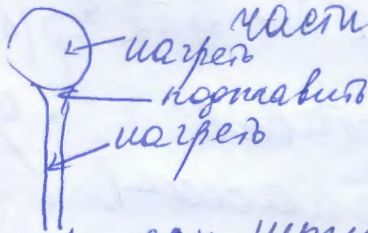 части
нагреть
подплавить
нагреть